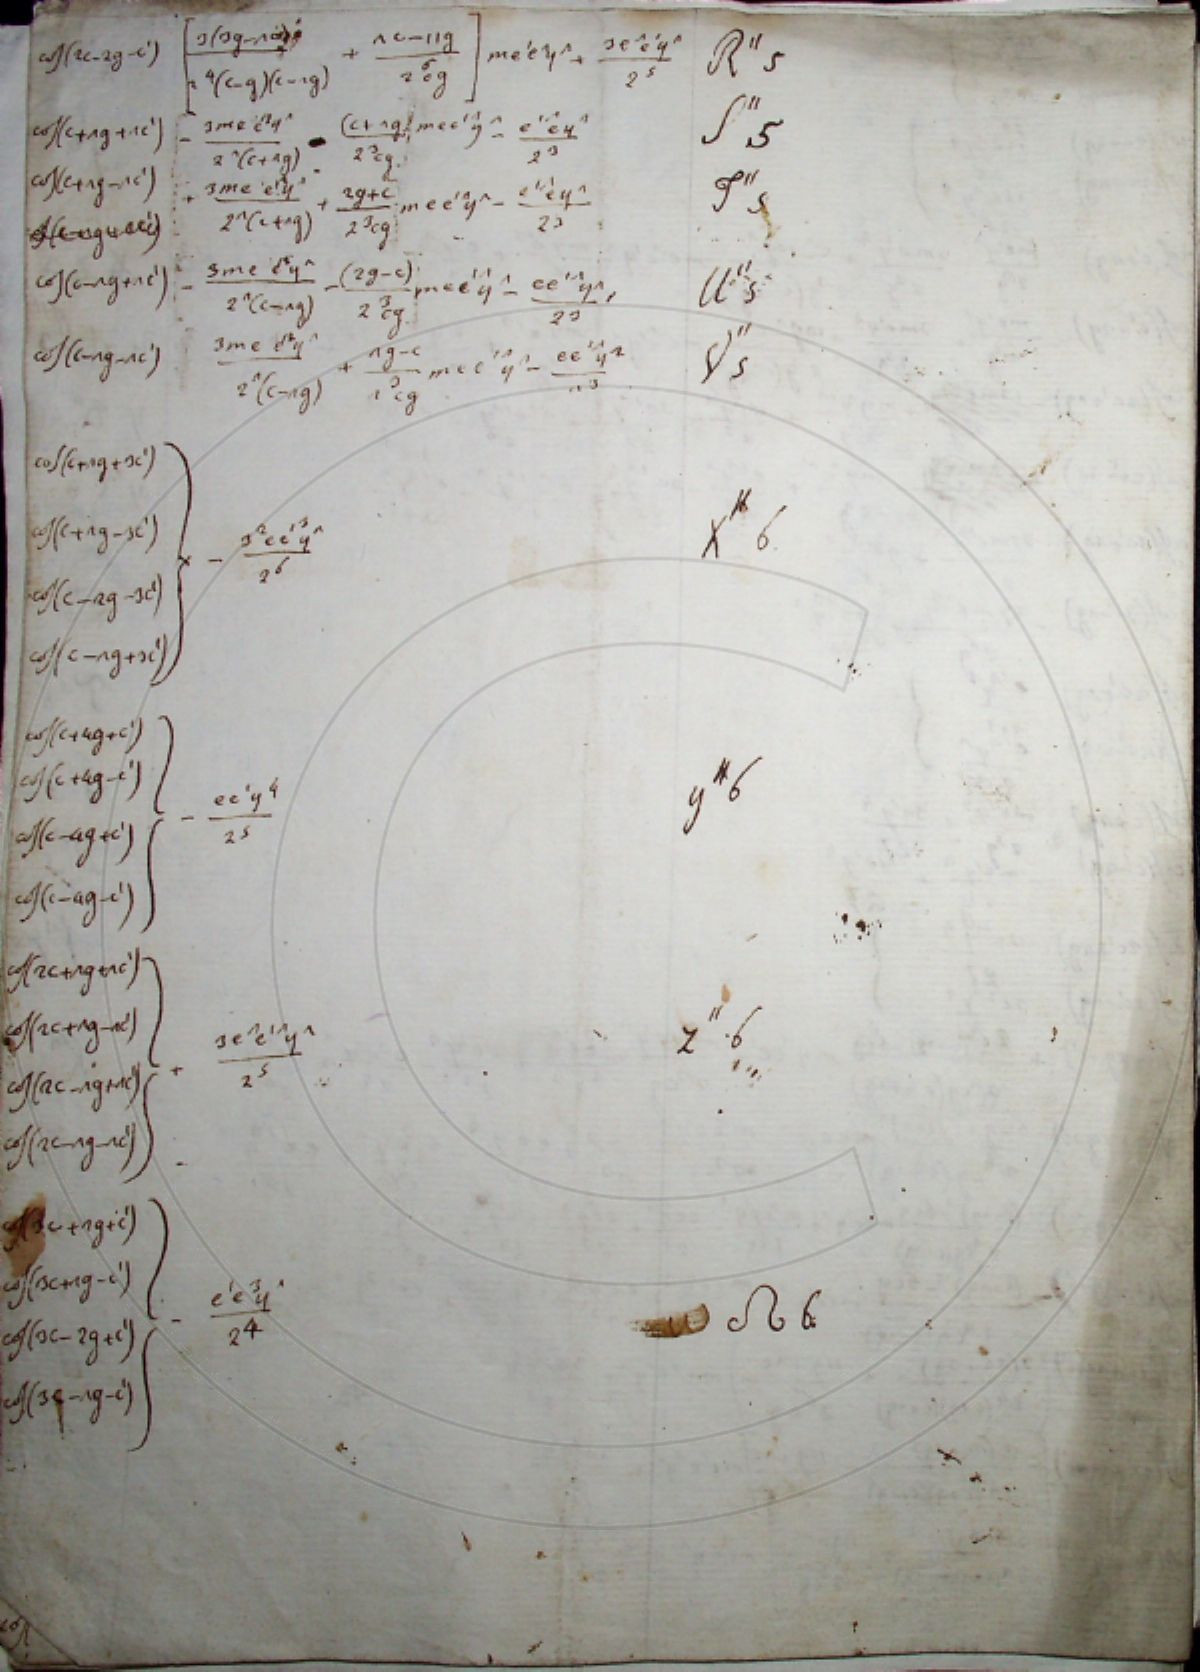 cos(2c-2g-c') [3(3g-2c)/2^4(c-g)(c-2g) + 2c-11g/2^6cg] mee'γ^2 + 3e^2e'γ^2/2^5 R''5
cos(c+2g+2c') - 3mee'^2γ^2/2^2(c+2g) - (c+2g)/2^3cg mee'^2γ^2 - e'^2eγ^2/2^3 S''5
cos(c+2g-2c') + 3mee'^2γ^2/2^2(c+2g) + 2g+c/2^3cg mee'^2γ^2 - e'^2eγ^2/2^3 T''5
cos(c-2g+2c') - 3mee'^2γ^2/2^2(c-2g) - (2g-c)/2^3cg mee'^2γ^2 - ee'^2γ^2/2^3 U''5
cos(c-2g-2c') 3mee'^2γ^2/2^2(c-2g) + 2g-c/2^3cg mee'^2γ^2 - ee'^2γ^2/2^3 V''5
cos(c+2g+3c')
cos(c+2g-3c')
- 3^2ee'^3γ^2/2^6 X''6
cos(c-2g-3c')
cos(c-2g+3c')
cos(c+4g+c')
cos(c+4g-c')
- ee'γ^4/2^5 y''6
cos(c-4g+c')
cos(c-4g-c')
cos(2c+2g+2c')
cos(2c+2g-2c')
+ 3e^2e'^2γ^2/2^5 Z''6
cos(2c-2g+2c')
cos(2c-2g-2c')
cos(3c+2g+c')
cos(3c+2g-c')
- e'e^3γ^2/2^4 Ω6
cos(3c-2g+c')
cos(3c-2g-c')
cos